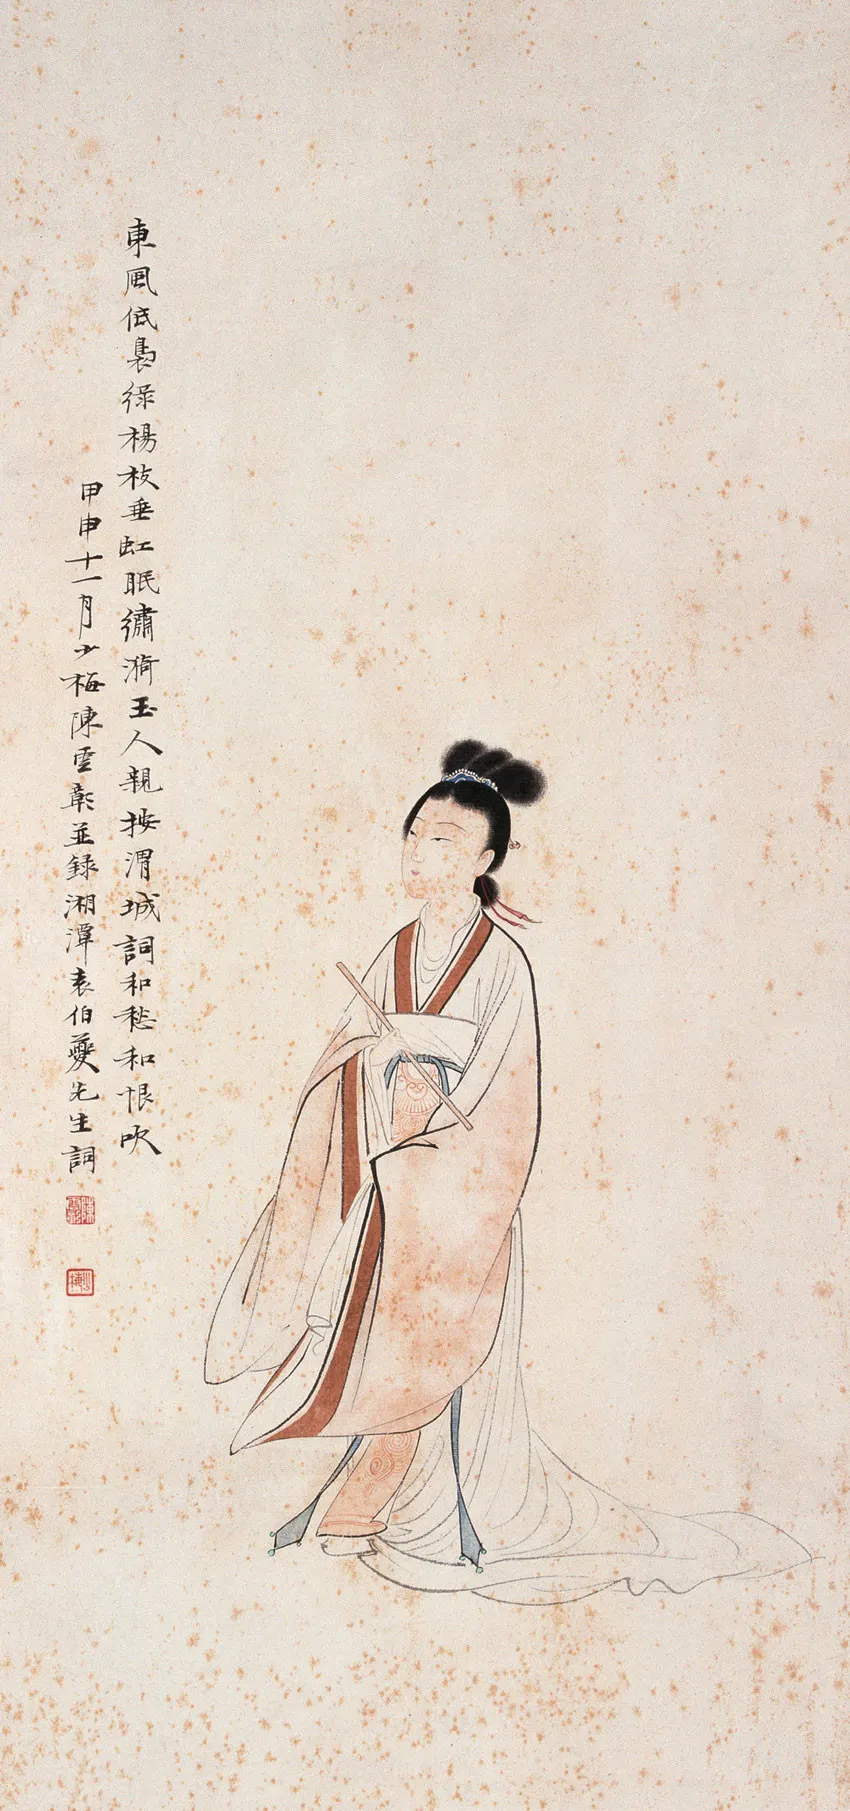 東風低裊綠楊枝垂虹眠繡漪玉人親按渭城詞和愁和恨吹
甲申十一月少梅陳雲彰並錄湘潭袁伯夔先生詞
陳雲彰
少梅